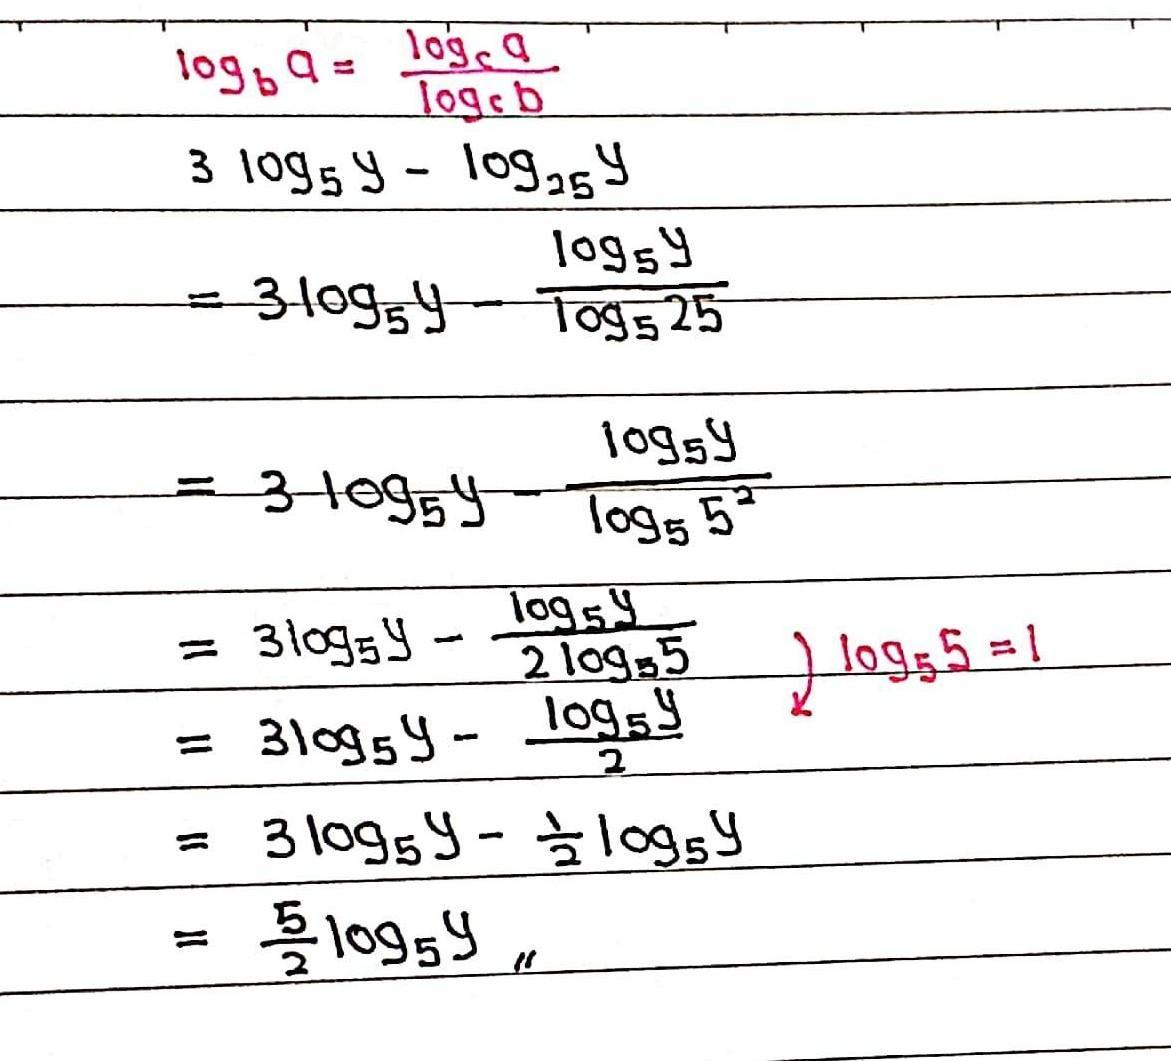 log_b a = log_c a / log_c b
3 log₅ y - log₂₅ y
= 3 log₅ y - log₅ y / log₅ 25
= 3 log₅ y - log₅ y / log₅ 5²
= 3 log₅ y - log₅ y / 2 log₅ 5 log₅ 5 = 1
= 3 log₅ y - log₅ y / 2
= 3 log₅ y - 1/2 log₅ y
= 5/2 log₅ y „